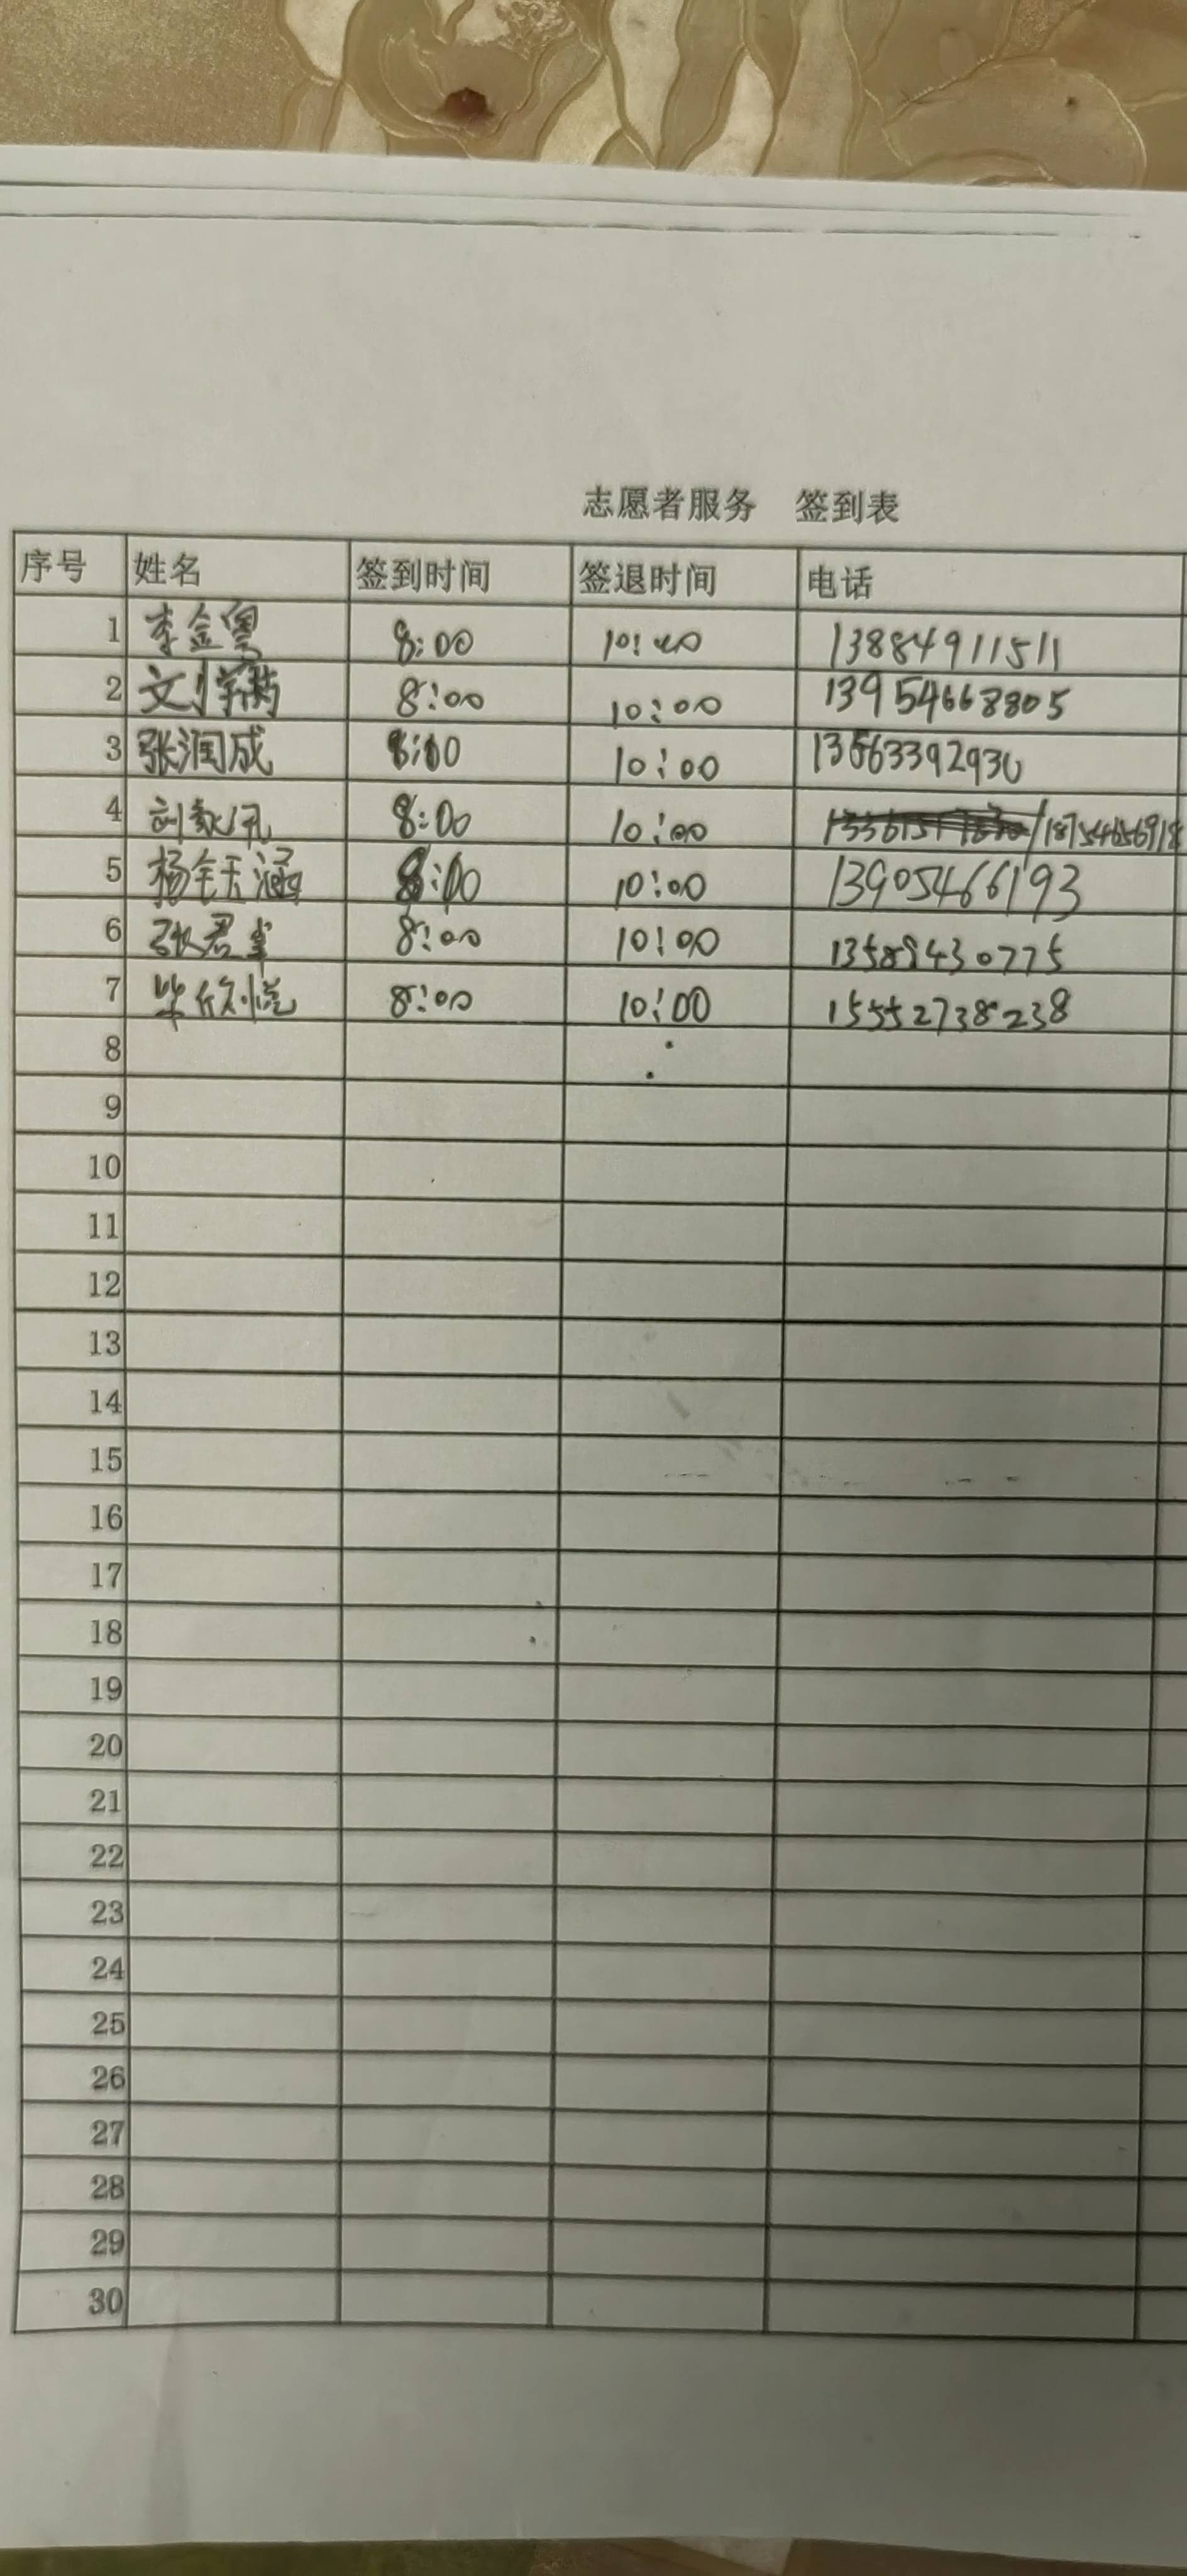 志愿者服务 签到表
序号 姓名 签到时间 签退时间 电话
1 李金粤 8:00 10:00 13884911511
2 8:00 10:00 13954668805
3 张润成 8:00 10:00 13563392930
4 8:00 10:00 /18754656918
5 杨钰涵 8:00 10:00 13905466193
6 张君 8:00 10:00 13589430775
7 毕欣悦 8:00 10:00 15552738238
8
9
10
11
12
13
14
15
16
17
18
19
20
21
22
23
24
25
26
27
28
29
30